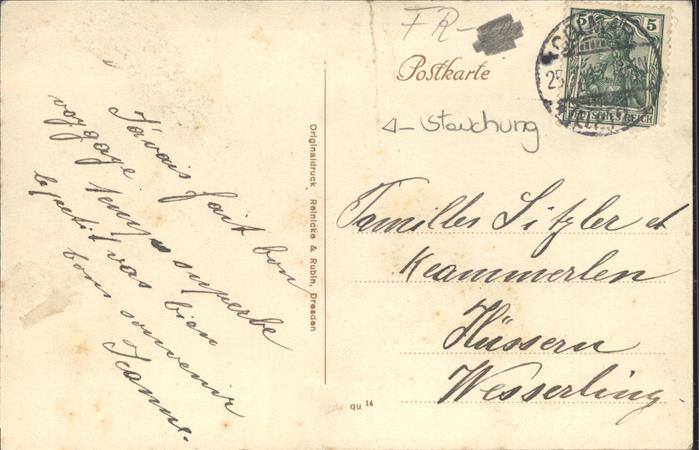 FR-
Postkarte
5 5
COLMAR
25
DEUTSCHES REICH
Stauchung
J'avais fait bon
voyage temps superbe
le petit vas bien
bons souvenir
Jeanne.
Originaldruck Reinicke & Rubin, Dresden
Familles Sitzler et
Kraemmerlen
Hüssern
Wesserling.
qu 14